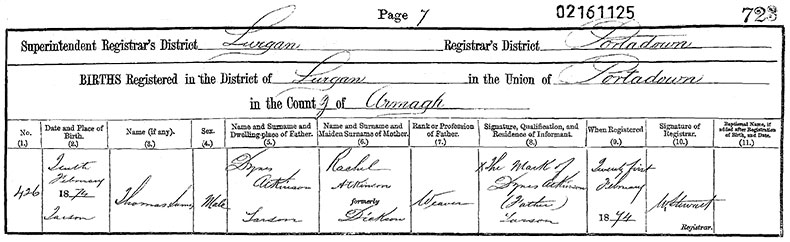 Page 7 02161125 723
Superintendent Registrar's District Lurgan Registrar's District Portadown
BIRTHS Registered in the District of Lurgan in the Union of Portadown
in the County of Armagh
No. (1.) Date and Place of Birth. (2.) Name (if any). (3.) Sex. (4.) Name and Surname and Dwelling-place of Father. (5.) Name and Surname and Maiden Surname of Mother. (6.) Rank or Profession of Father. (7.) Signature, Qualification, and Residence of Informant. (8.) When Registered (9.) Signature of Registrar. (10.) Baptismal Name, if added after Registration of Birth, and Date. (11.)
426
Tenth
February
1874
Tarson
Thomas
Male
Dynes
Atkinson
Tarson
Rachel
Atkinson
formerly
Dickson
Weaver
X The Mark of
Dynes Atkinson
(Father)
Tarson
Twenty first
February
1874
Stewart
Registrar.